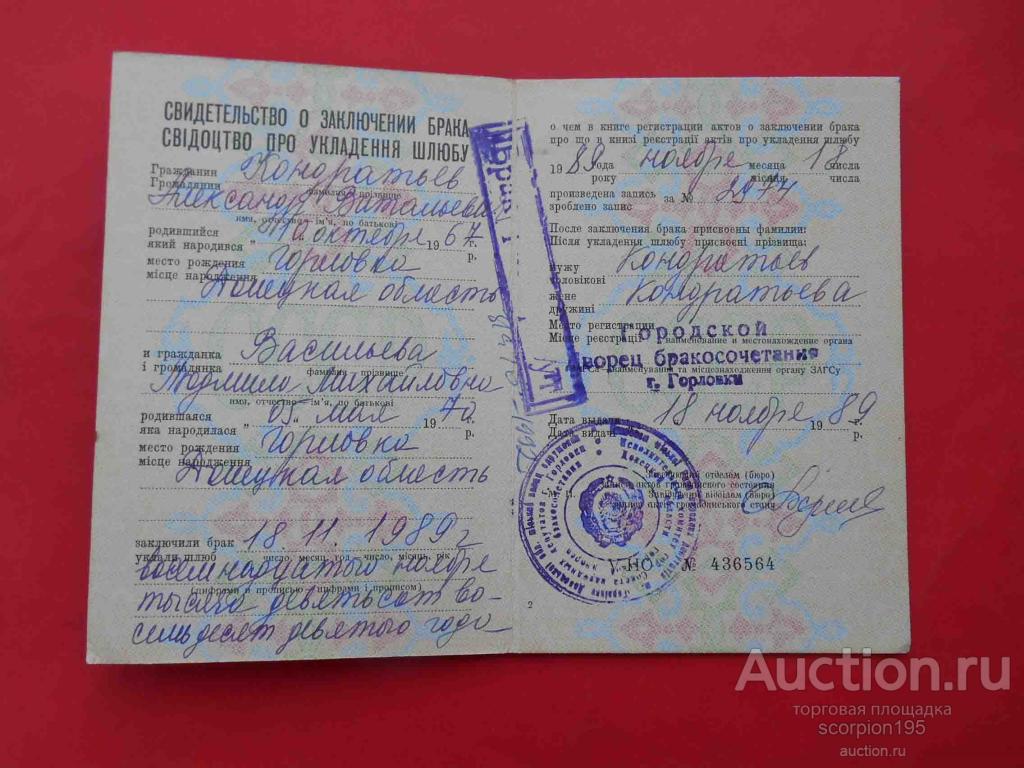 СВИДЕТЕЛЬСТВО О ЗАКЛЮЧЕНИИ БРАКА
СВІДОЦТВО ПРО УКЛАДЕННЯ ШЛЮБУ
Гражданин Кондратьев
Громадянин
фамилия прізвище
Александр Витальевич
имя, отчество ім'я, по батькові
родившийся октября 1967 г.
який народився р.
место рождения Горловка
місце народження
Донецкая область
и гражданка Васильева
і громадянка
фамилия прізвище
Людмила Михайловна
имя, отчество ім'я, по батькові
родившаяся 05 мая 1970 г.
яка народилася р.
место рождения Горловка
місце народження
Донецкая область
заключили брак 18.11.1989 г
уклали шлюб число, месяц, год число, місяць, рік
восемнадцатого ноября
(цифрами и прописью цифрами і прописом)
тысяча девятьсот во-
семьдесят девятого года
о чем в книге регистрации актов о заключении брака
про що в книзі реєстрації актів про укладення шлюбу
1989 года ноября месяца 18 числа
року місяця числа
произведена запись за № 2974
зроблено запис
После заключения брака присвоены фамилии:
Після укладення шлюбу присвоєні прізвища:
мужу Кондратьев
чоловікові
жене Кондратьева
дружині
Место регистрации Городской
Місце реєстрації наименование и местонахождение органа
Дворец бракосочетания
найменування та місцезнаходження органу ЗАГСу
г. Горловки
Дата выдачи 18 ноября 1989 г.
Дата видачі р.
отделом (бюро)
записи актов гражданского состояния
Завідуючий відділом (бюро)
запису актів громадянського стану
V-НО № 436564
2
Auction.ru
торговая площадка
scorpion195
auction.ru